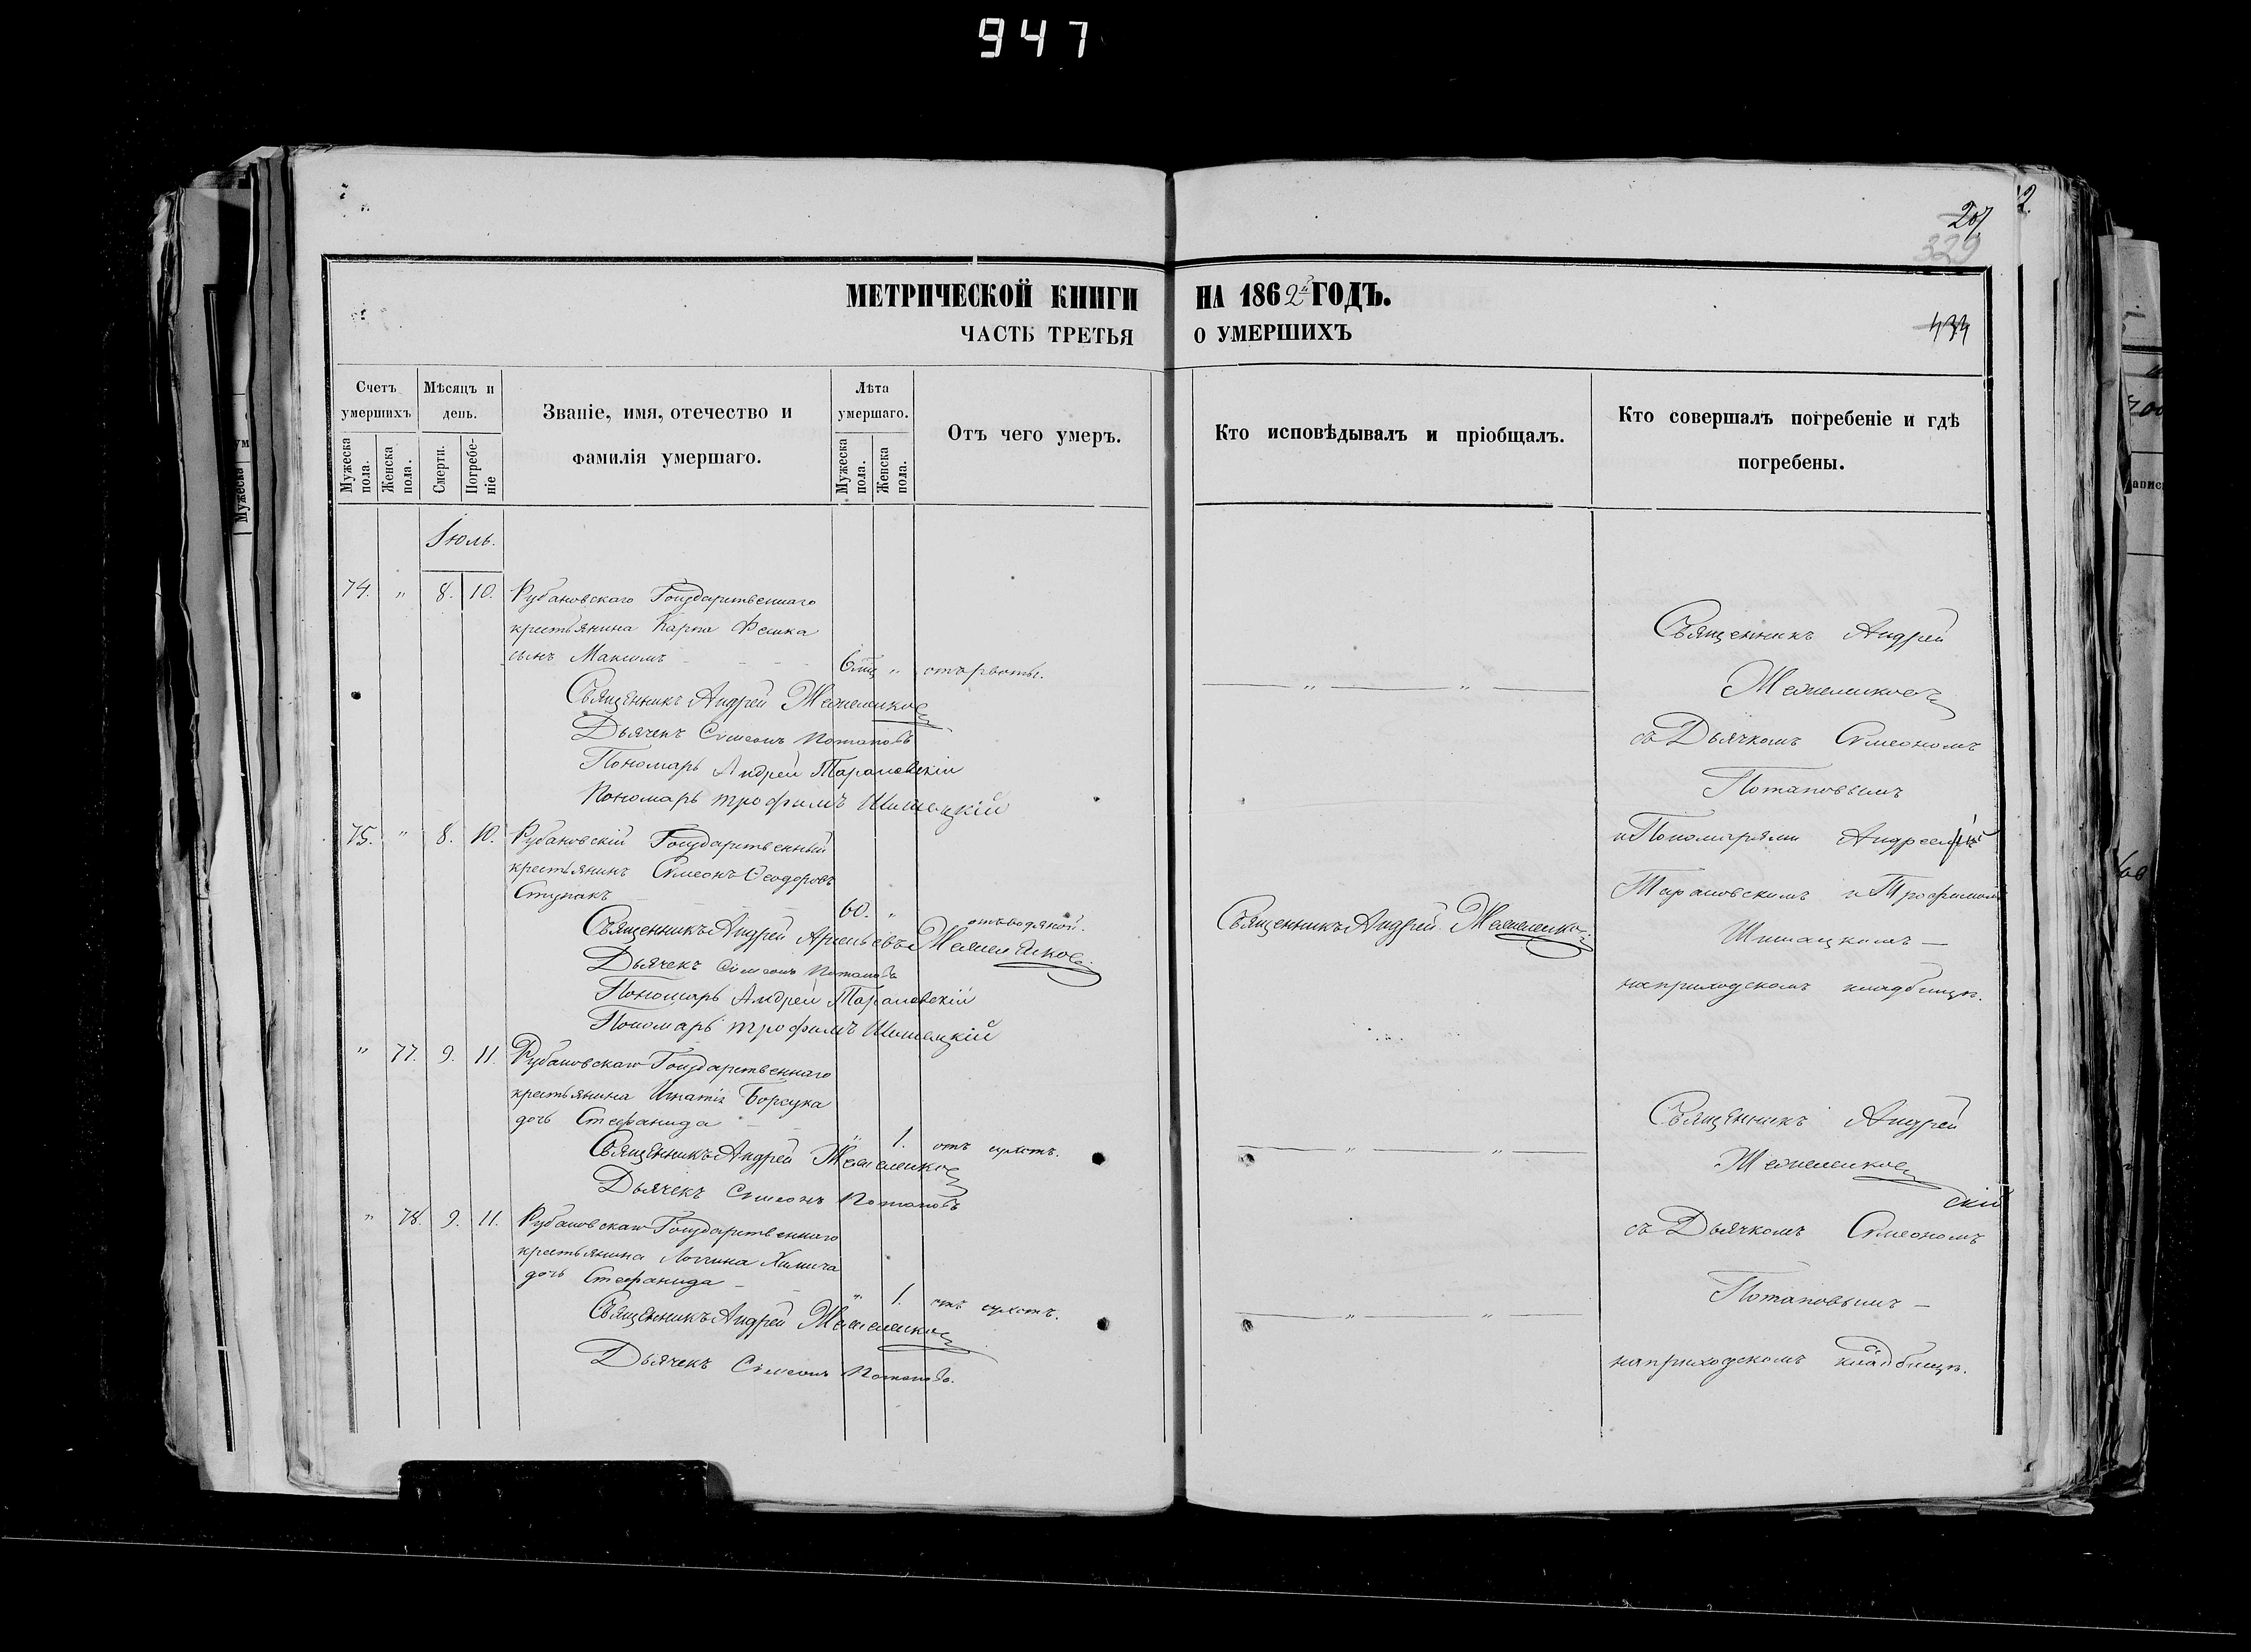 947
207
329
434
МЕТРИЧЕСКОЙ КНИГИ НА 1862й ГОДЪ.
ЧАСТЬ ТРЕТЬЯ О УМЕРШИХЪ
Счетъ умершихъ
Мужеска пола.
Женска пола.
Мѣсяцъ и день.
Смерти.
Погребеніе
Званіе, имя, отечество и
фамилія умершаго.
Лѣта умершаго.
Мужеска пола.
Женска пола.
Отъ чего умеръ.
Кто исповѣдывалъ и пріобщалъ.
Кто совершалъ погребеніе и гдѣ
погребены.
Іюль.
74. " 8. 10. Рубановскаго Государственнаго
крестьянина Карпа
сынъ Максимъ 6 мц " отъ рвоты.
Священникъ Андрей
Дьячекъ Сѵмеонъ Потаповъ
Пономарь Андрей Тарановскій
Пономарь Трофимъ Шишацкій
75. " 8. 10. Рубановскій Государственный
крестьянинъ Сѵмеонъ Ѳеодоровъ
Ступакъ 60. " отъ водяной.
Священникъ Андрей Арсеньевъ
Дьячекъ Сѵмеонъ Потаповъ
Пономарь Андрей Тарановскій
Пономарь Трофимъ Шишацкій
" 77. 9. 11. Рубановскаго Государственнаго
крестьянина Игнатія Борсука
дочь Стефанида " 1. отъ сухотъ.
Священникъ Андрей
Дьячекъ Сѵмеонъ Потаповъ
" 78. 9. 11. Рубановскаго Государственнаго
крестьянина Логгина Химича
дочь Стефанида " 1. отъ сухотъ.
Священникъ Андрей
Дьячекъ Сѵмеонъ Потаповъ.
Священникъ Андрей
Священникъ Андрей
съ Дьячкомъ Сѵмеономъ
Потаповымъ
и Пономарями Андреемъ
Тарановскимъ и Трофимомъ
Шишацкимъ —
на приходскомъ кладбищѣ.
Священникъ Андрей
скій
съ Дьячкомъ Сѵмеономъ
Потаповымъ —
на приходскомъ кладбищѣ.